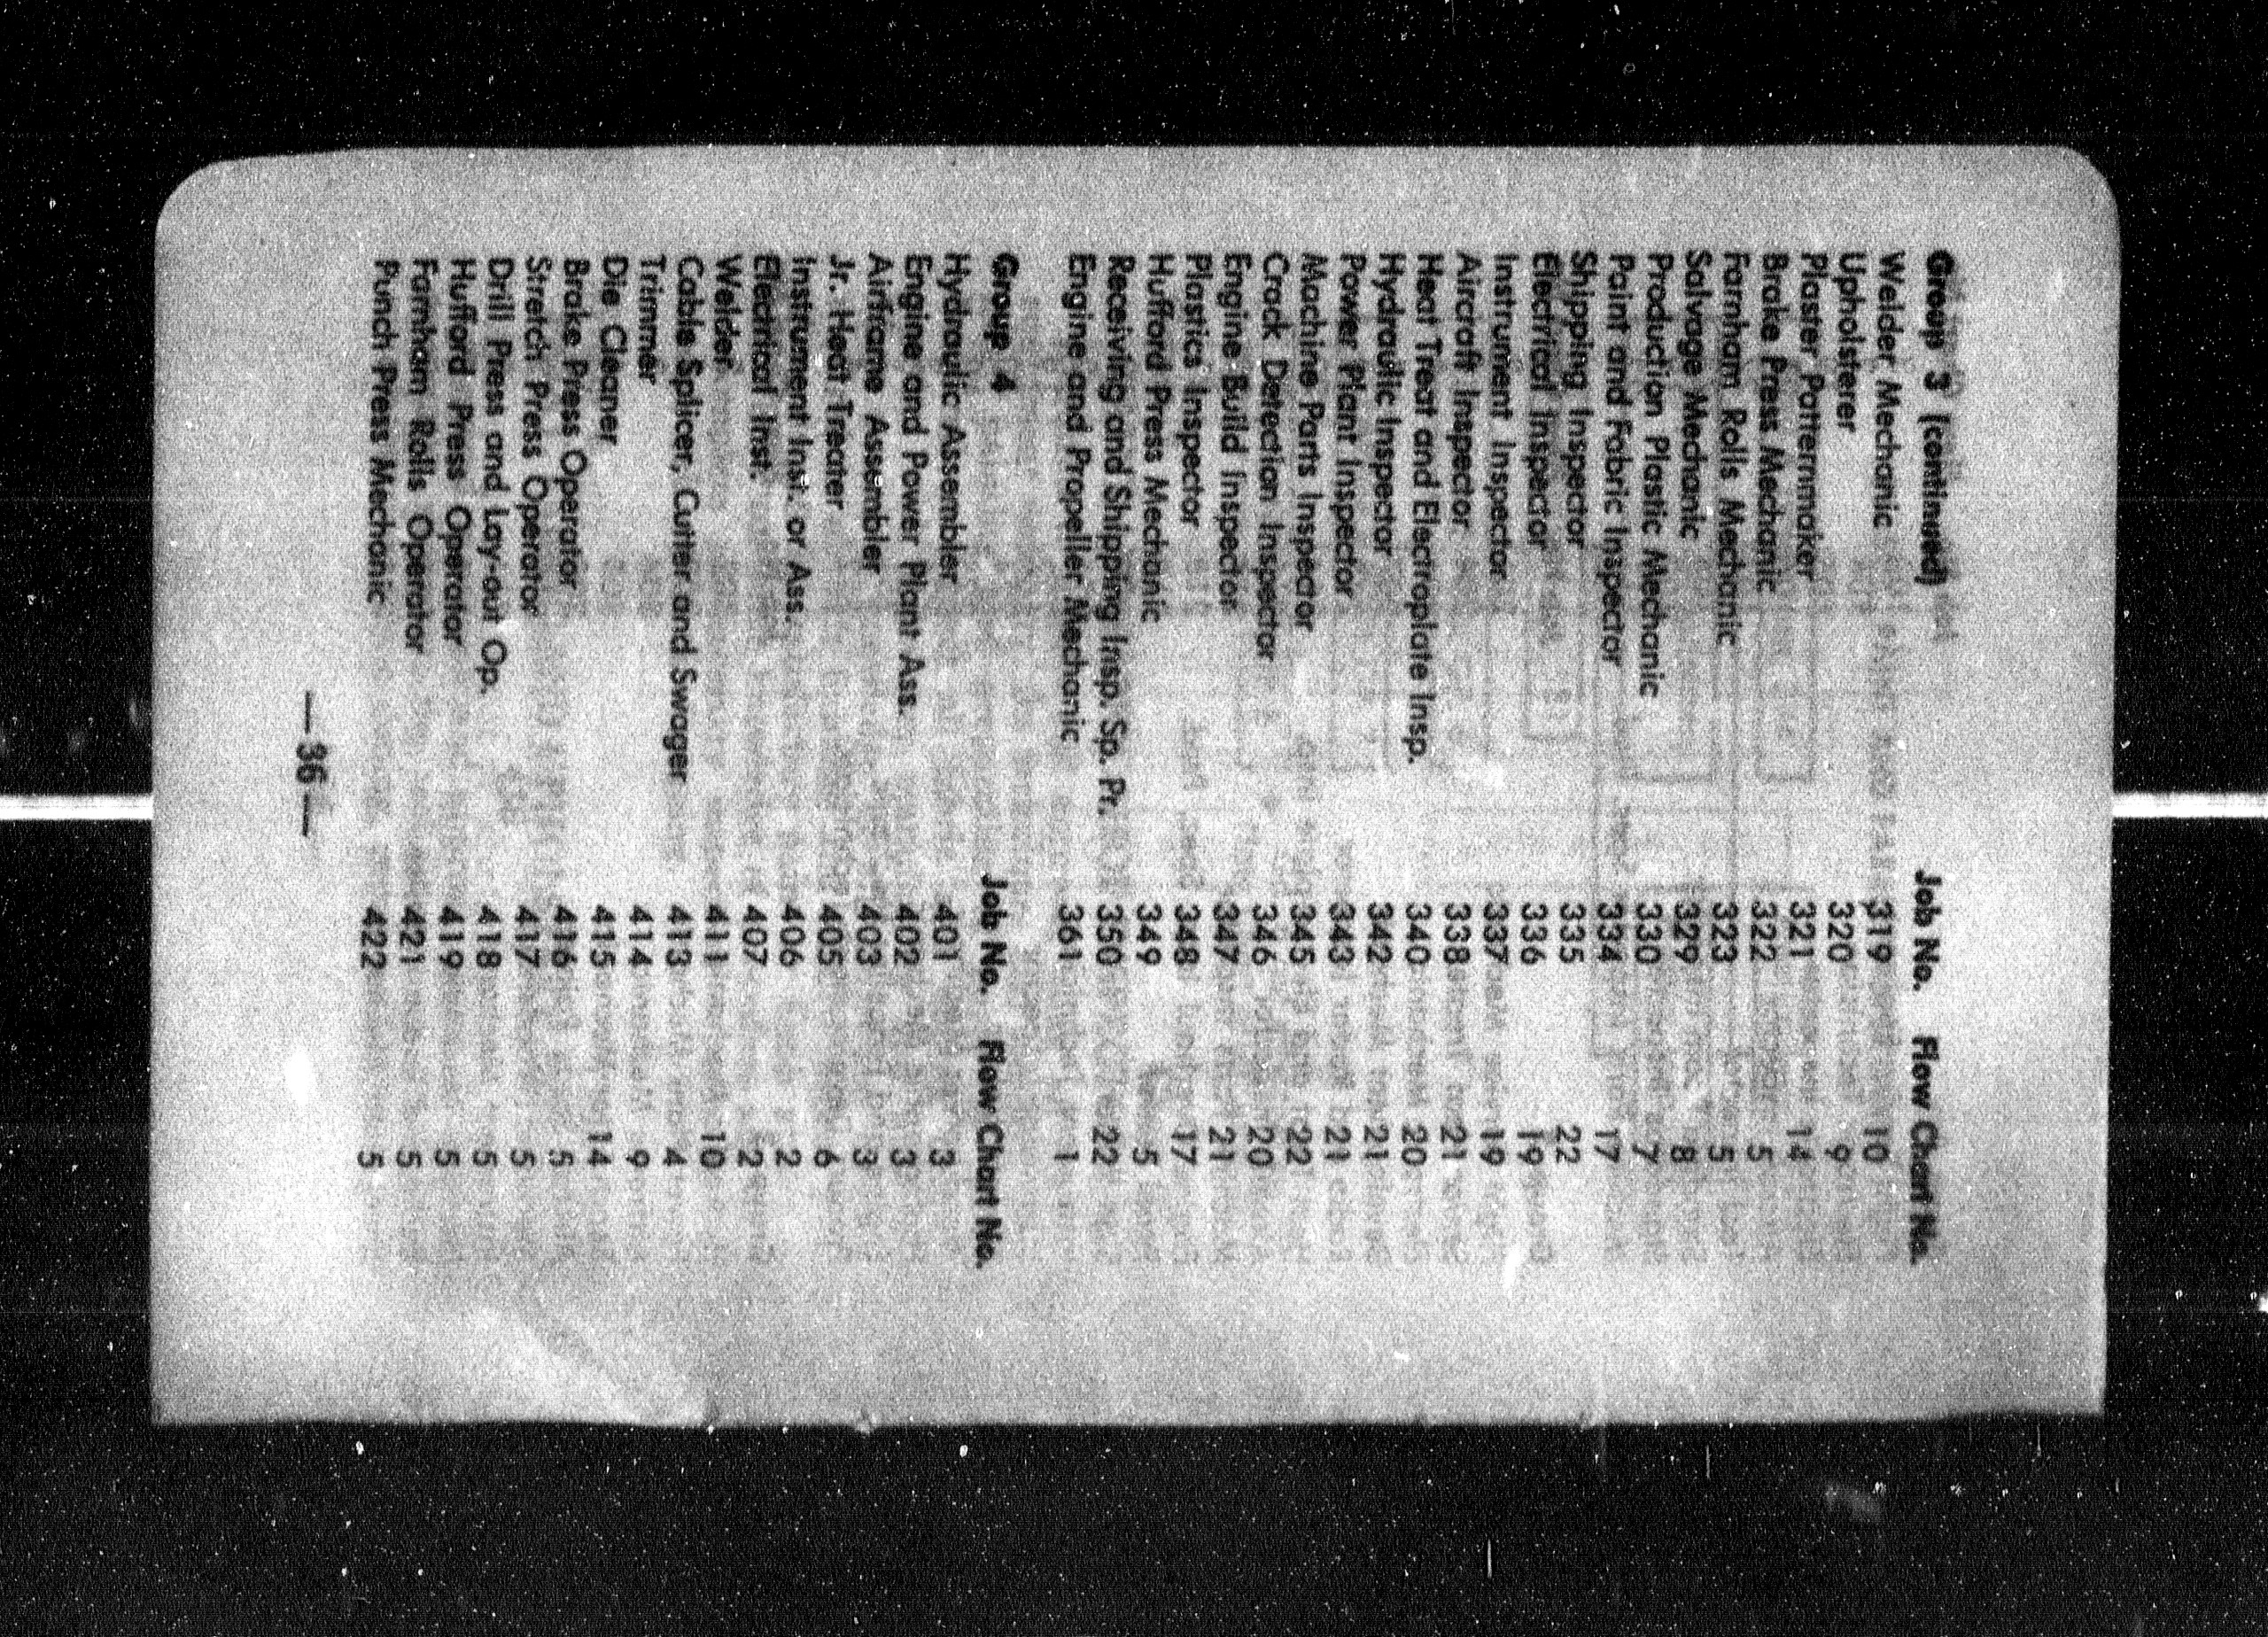 Group 3 (continued) Job No. Flow Chart No.
Welder Mechanic 319 10
Upholsterer 320 9
Plaster Patternmaker 321 14
Brake Press Mechanic 322 5
Farnham Rolls Mechanic 323 5
Salvage Mechanic 329 8
Production Plastic Mechanic 330 7
Paint and Fabric Inspector 334 17
Shipping Inspector 335 22
Electrical Inspector 336 19
Instrument Inspector 337 19
Aircraft Inspector 338 21
Heat Treat and Electroplate Insp. 340 20
Hydraulic Inspector 342 21
Power Plant Inspector 343 21
Machine Parts Inspector 345 22
Crack Detection Inspector 346 20
Engine Build Inspector 347 21
Plastics Inspector 348 17
Hufford Press Mechanic 349 5
Receiving and Shipping Insp. Sp. Pr. 350 22
Engine and Propeller Mechanic 361 1
Group 4 Job No. Flow Chart No.
Hydraulic Assembler 401 3
Engine and Power Plant Ass. 402 3
Airframe Assembler 403 3
Jr. Heat Treater 405 6
Instrument Inst. or Ass. 406 2
Electrical Inst. 407 2
Welder 411 10
Cable Splicer, Cutter and Swager 413 4
Trimmer 414 9
Die Cleaner 415 14
Brake Press Operator 416 5
Stretch Press Operator 417 5
Drill Press and Lay-out Op. 418 5
Hufford Press Operator 419 5
Farnham Rolls Operator 421 5
Punch Press Mechanic 422 5
—36—